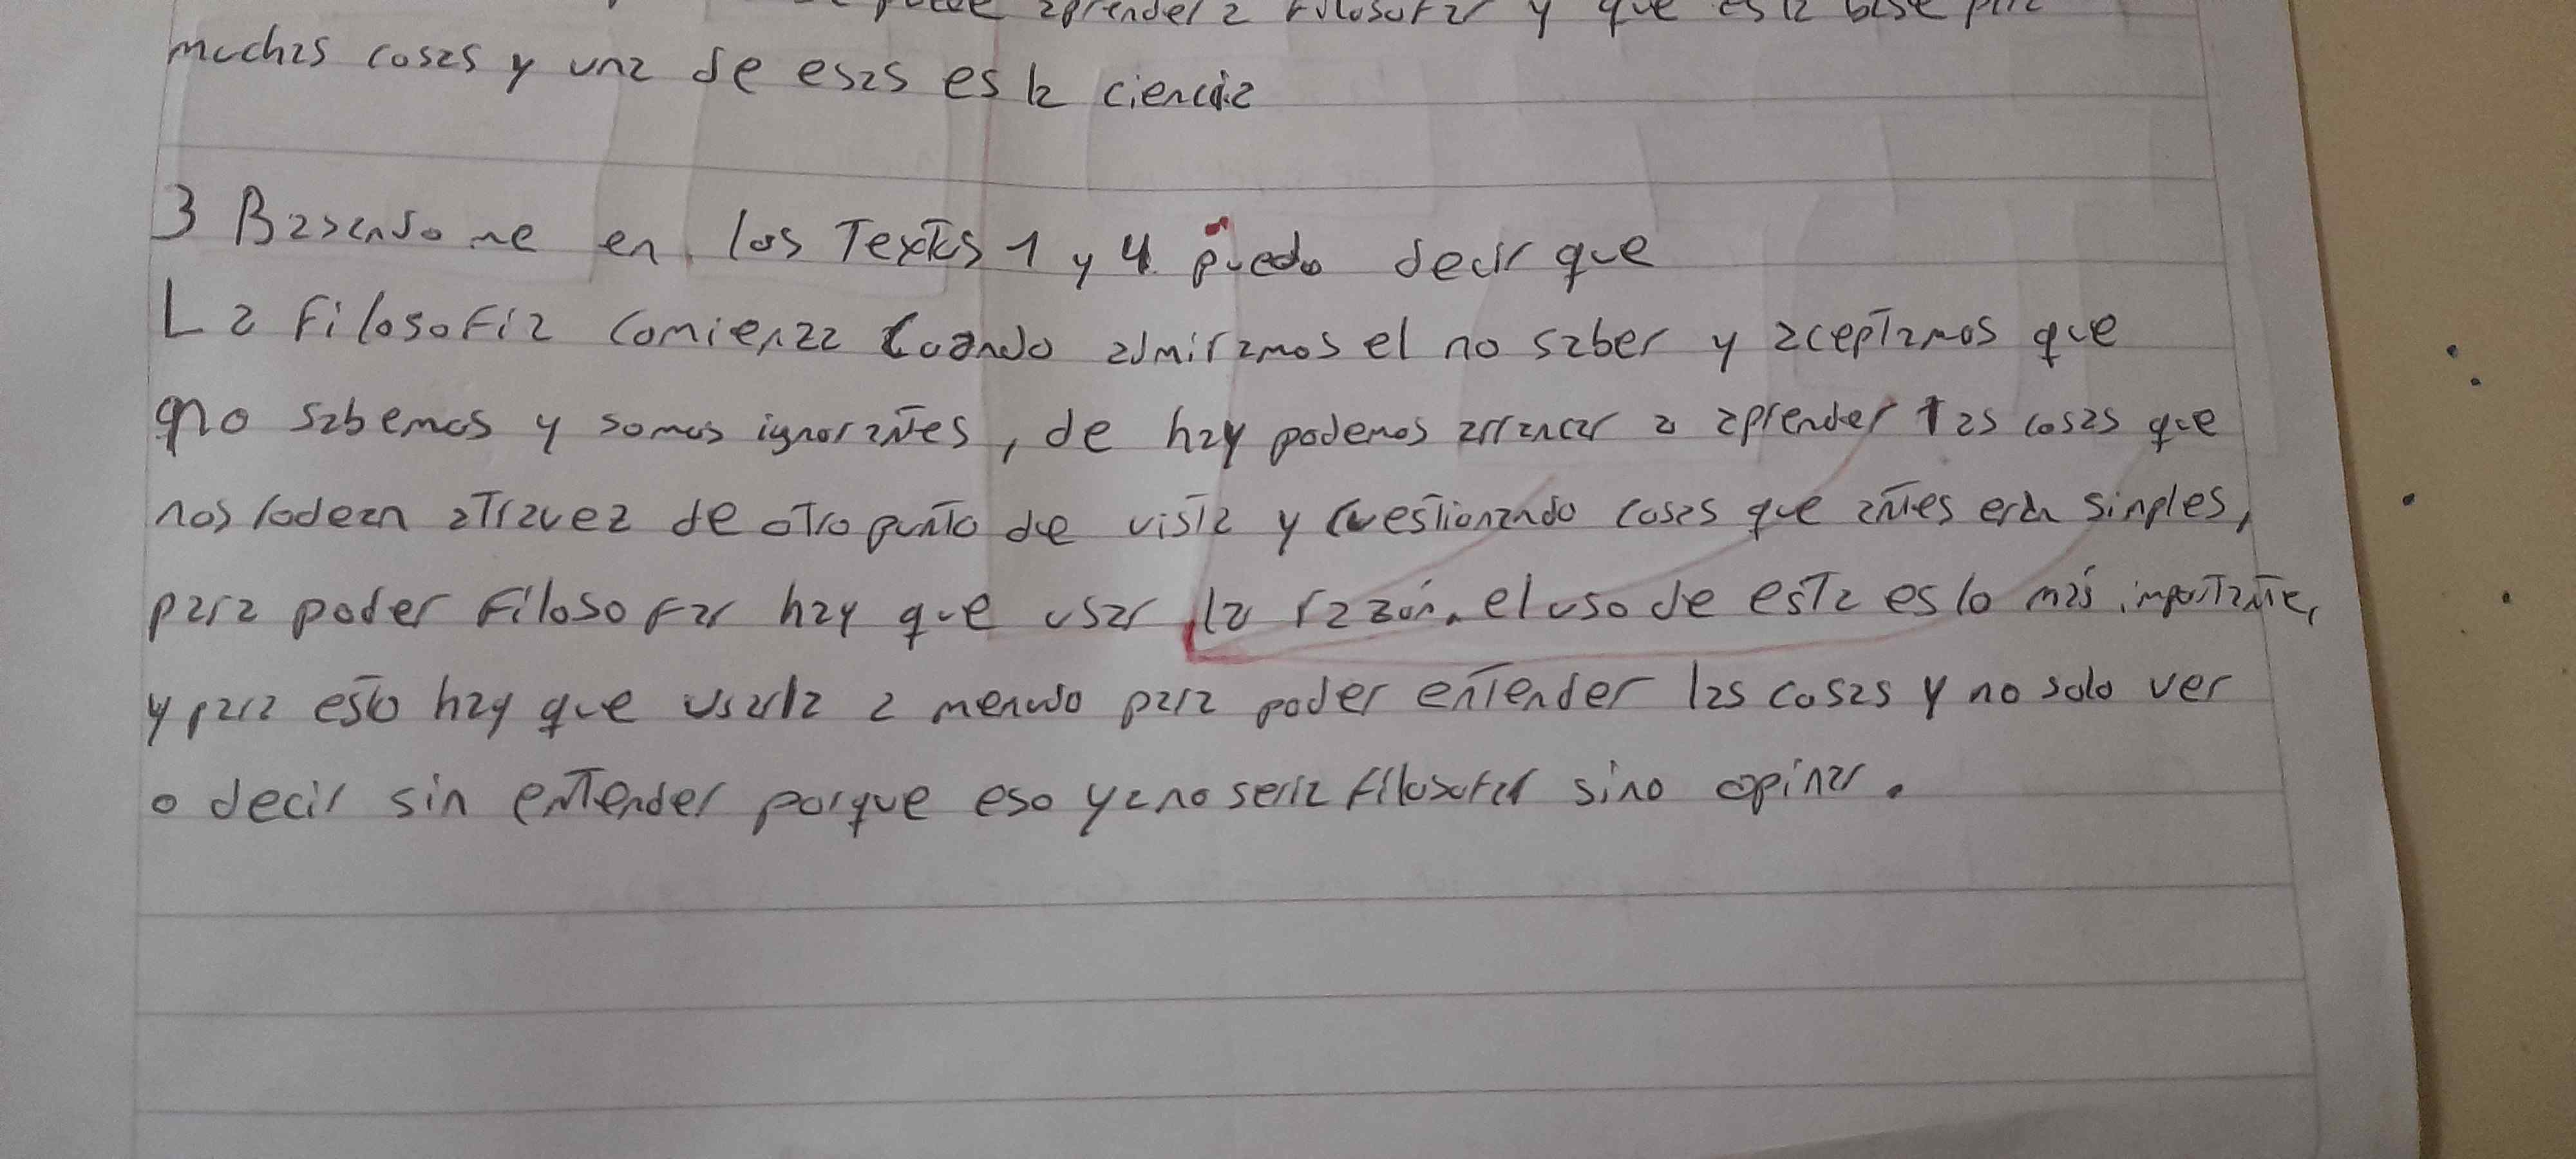 puede aprender a filosofar y que es la base para
muchas cosas y una de esas es la ciencia
3 Basendo me en los Textos 1 y 4 puedo decir que
La filosofia comienza Cuando admiramos el no saber y aceptamos que
no sabemos y somos ignorantes, de hay podemos arrancar a aprender las cosas que
nos rodean atravez de otro punto de vista y cuestionando cosas que antes eran simples,
para poder filosofar hay que usar la razón. el uso de esta es lo más importante,
y para esto hay que usarla a menudo para poder entender las cosas y no solo ver
o decir sin entender porque eso ya no seria filosofar sino opinar.